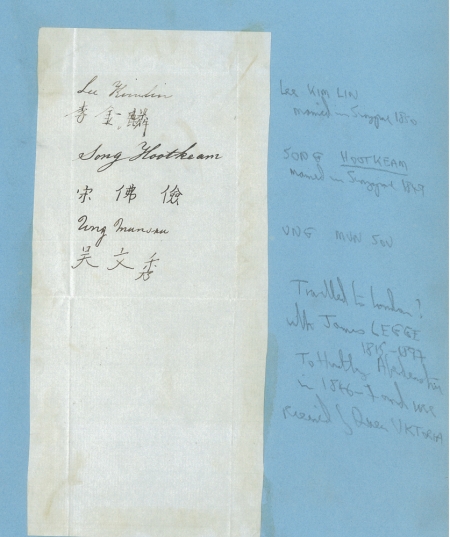 Lee Kimlin
李金麟
Song Hootkeam
宋佛儉
Ung Munsou
吴文秀
Lee KIM LIN
married in Singapore 1850
SONG HOOTKEAM
married in Singapore 1849
UNG MUN SOU
Travelled to London?
with James LEGGE
1815-1897
To Huntly Aberdeenshire
in 1846-7 and were
received by Queen VIKTORIA